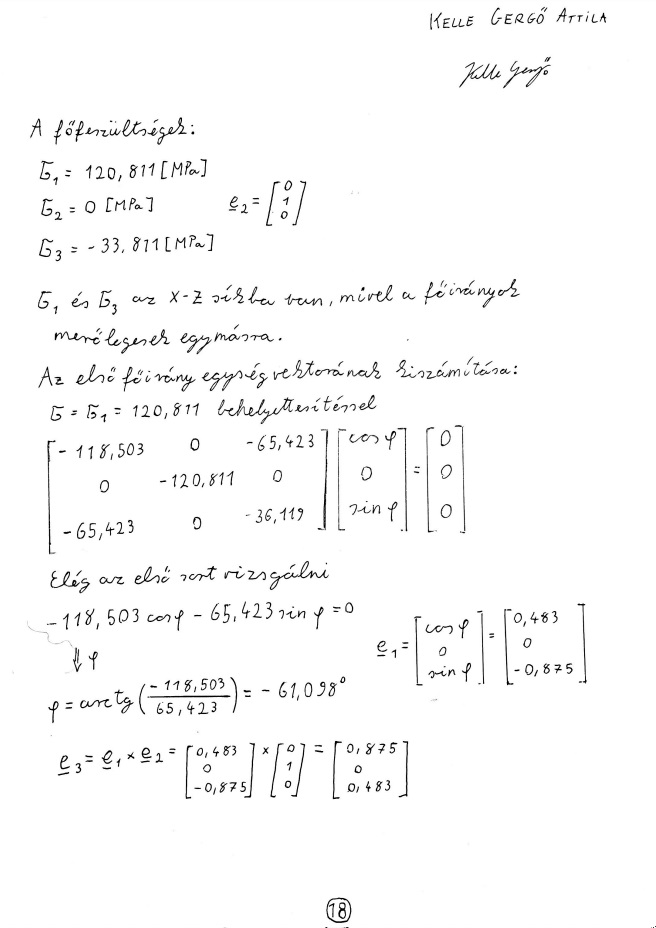 KELLE GERGŐ ATTILA
Kelle Gergő
A főfeszültségek:
σ₁ = 120,811 [MPa]
σ₂ = 0 [MPa] e₂ = [0 1 0]
σ₃ = -33,811 [MPa]
σ₁ és σ₃ az X-Z síkba van, mivel a főirányok
merőlegesek egymásra.
Az első főirány egységvektorának kiszámítása:
σ = σ₁ = 120,811 behelyettesítéssel
[-118,503 0 -65,423] [cos φ] = [0]
[0 -120,811 0] [0] = [0]
[-65,423 0 -36,119] [sin φ] = [0]
Elég az első sort vizsgálni
-118,503 cos φ - 65,423 sin φ = 0
⇓ φ
e₁ = [cos φ 0 sin φ] = [0,483 0 -0,875]
φ = arctg (-118,503 / 65,423) = -61,098°
e₃ = e₁ × e₂ = [0,483 0 -0,875] × [0 1 0] = [0,875 0 0,483]
18